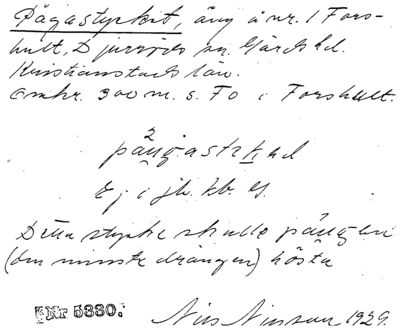 Pågastycket, äng å nr. 1 Fors-
hult, Djurröds sn. Gärds hd.
Kristianstads län.
Omkr. 300 m. s. Fo i Forshult.
2
pångastikel
Ej i jb. kb. ej.
Detta stycke skulle pången
(den minste drängen) hösta
Nr 5330.
Nils Nilsson 1929.